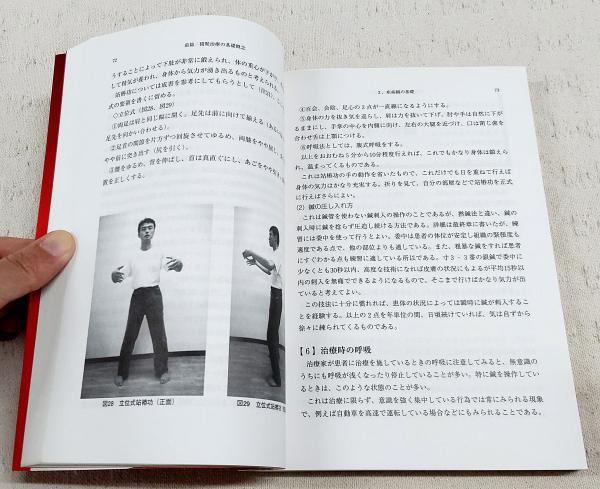 72
前篇・積聚治療の基礎概念
うすることによって下肢が非常に鍛えられ、体の重心が下が
して精気が養われ、身体から気力が湧き出るものと考えられる。
站樁功については成書を参考にしてもらうとして
式の要領を書くに留める。
◇立位式（図28、図29）
①両足は肩と同じ幅に開く。足先は前に向けて揃える
足先を向かい合わせる）。
②足首の関節を片方ずつ回旋させてゆるめ、両膝をやや
やや前に突き出す（尻を引く）。
③腰をゆるめ、背を伸ばし、首は真直ぐにし、あごをやや
置を正しくする。
図28 立位式站樁功〔正面〕
図29 立位式站樁功
2．重歳鍼の基礎
73
④百会、会陰、足心の3点が一直線になるようにする。
⑤身体の力を抜き気を巡らし、肩は力を抜いて下げ、肘や手は自然に下が
るままにし、手掌の中心を内側に向け、左右の大腿を近づけ、口は閉じ歯を
合わせ舌は上顎につける。
⑥呼吸法としては、腹式呼吸をする。
以上をおおむね5分から10分程度行えれば、これでもかなり身体は鍛えら
れ、温まってくるものである。
これは站樁功の手の動作を省いたもので、これだけでも日を重ねて行えば
身体の気力はかなり充実する。折りを見て、自分の部屋などで站樁功を正式
に行えばさらによい。
(2) 鍼の圧し入れ方
これは鍼管を使わない鍼刺入の操作のことであるが、撚鍼法と違い、鍼の
刺入時に鍼を捻らず圧迫し続ける方法である。詳細は最終章に書いたが、練
習には委中を使って行うとよい。委中は患者の体位が安定し組織の緊張度も
適度である点で、他の部位よりも適している。また、粗暴な鍼をすれば患者
にすぐわかる点も練習に適している所以である。寸3－3番の銀鍼で委中に
少なくとも30秒以内、高度な技術になれば皮膚の状況にもよるが平均15秒以
内の刺入を無痛でできるようになるもので、そこまで行けばかなり気力が出
ていると考えてよい。
この技法に十分に慣れれば、患体の状況によっては瞬時に鍼が刺入するこ
とを経験する。以上の2点を年単位の間、日頃続けていれば、気は自ずから
徐々に練られてくるものである。
【6】治療時の呼吸
治療家が患者に治療を施しているときの呼吸に注意してみると、無意識の
うちにも呼吸が浅くなったり停止していることが多い。特に鍼を操作してい
るときは、このような状態のことが多い。
これは治療に限らず、意識を強く集中している行為では常にみられる現象
で、例えば自動車を高速で運転している場合などにもみられることである。